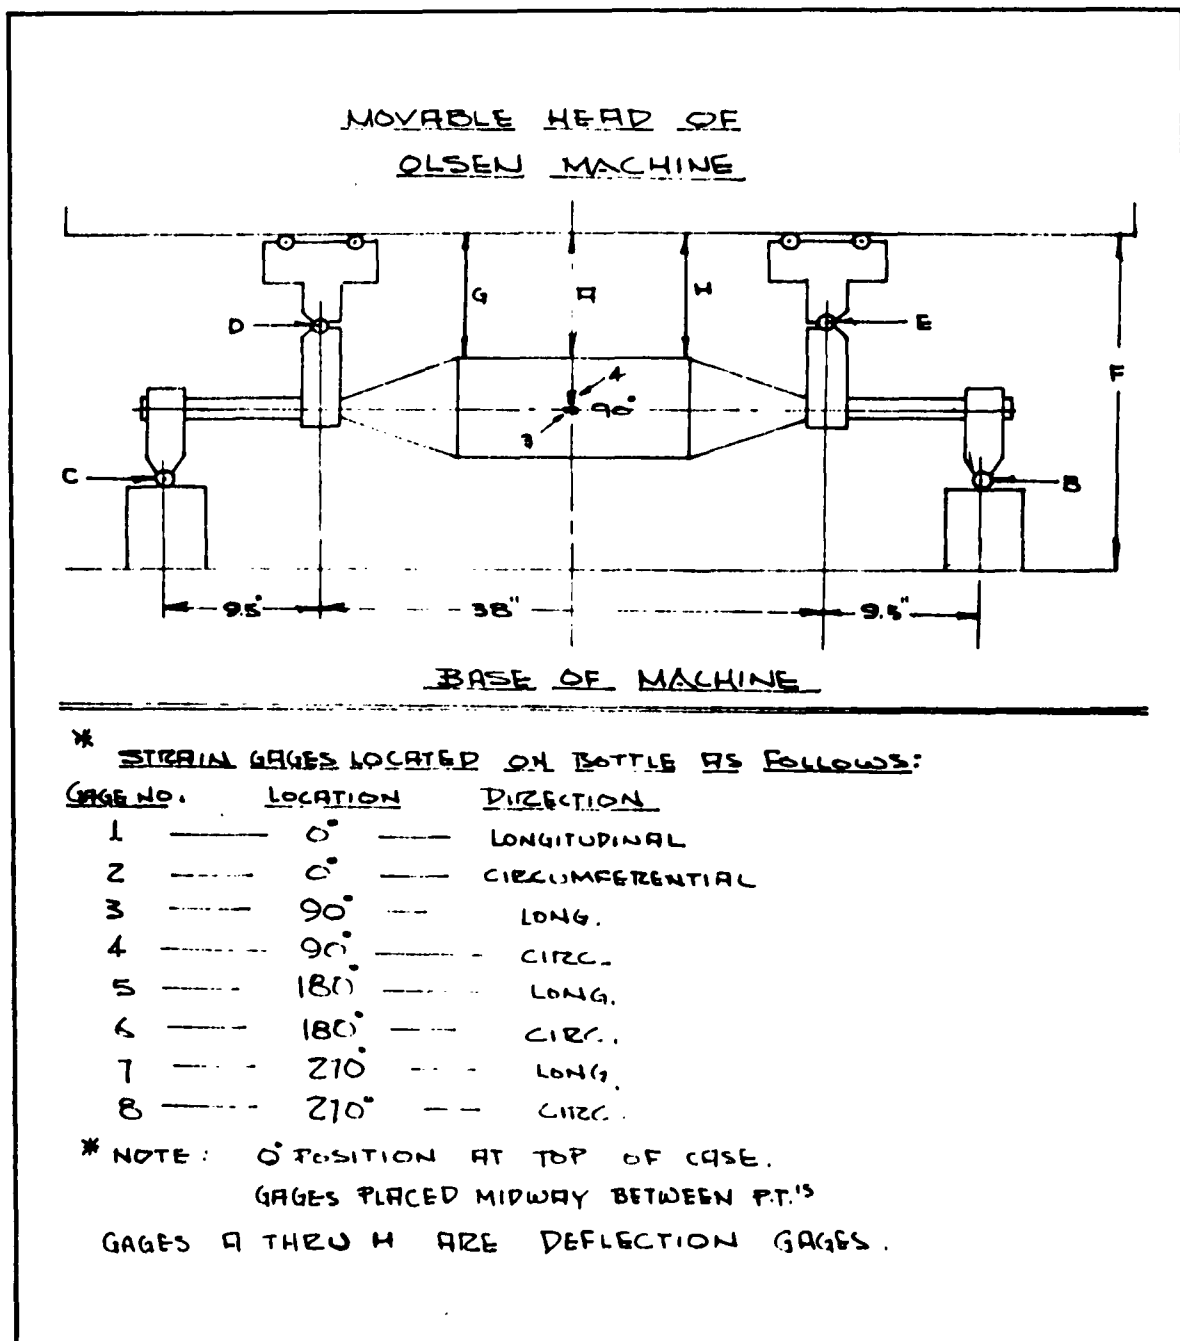 MOVABLE HEAD OF
OLSEN MACHINE
G
A
H
D
E
F
4
90°
3
C
B
9.5"
38"
9.5"
BASE OF MACHINE
* STRAIN GAGES LOCATED ON BOTTLE AS FOLLOWS:
GAGE NO. LOCATION DIRECTION
1 —— 0° —— LONGITUDINAL
2 —— 0° —— CIRCUMFERENTIAL
3 —— 90° —— LONG.
4 —— 90° —— CIRC.
5 —— 180° —— LONG.
6 —— 180° —— CIRC.
7 —— 270° —— LONG.
8 —— 270° —— CIRC.
* NOTE: 0° POSITION AT TOP OF CASE.
GAGES PLACED MIDWAY BETWEEN P.T.'S
GAGES A THRU H ARE DEFLECTION GAGES.